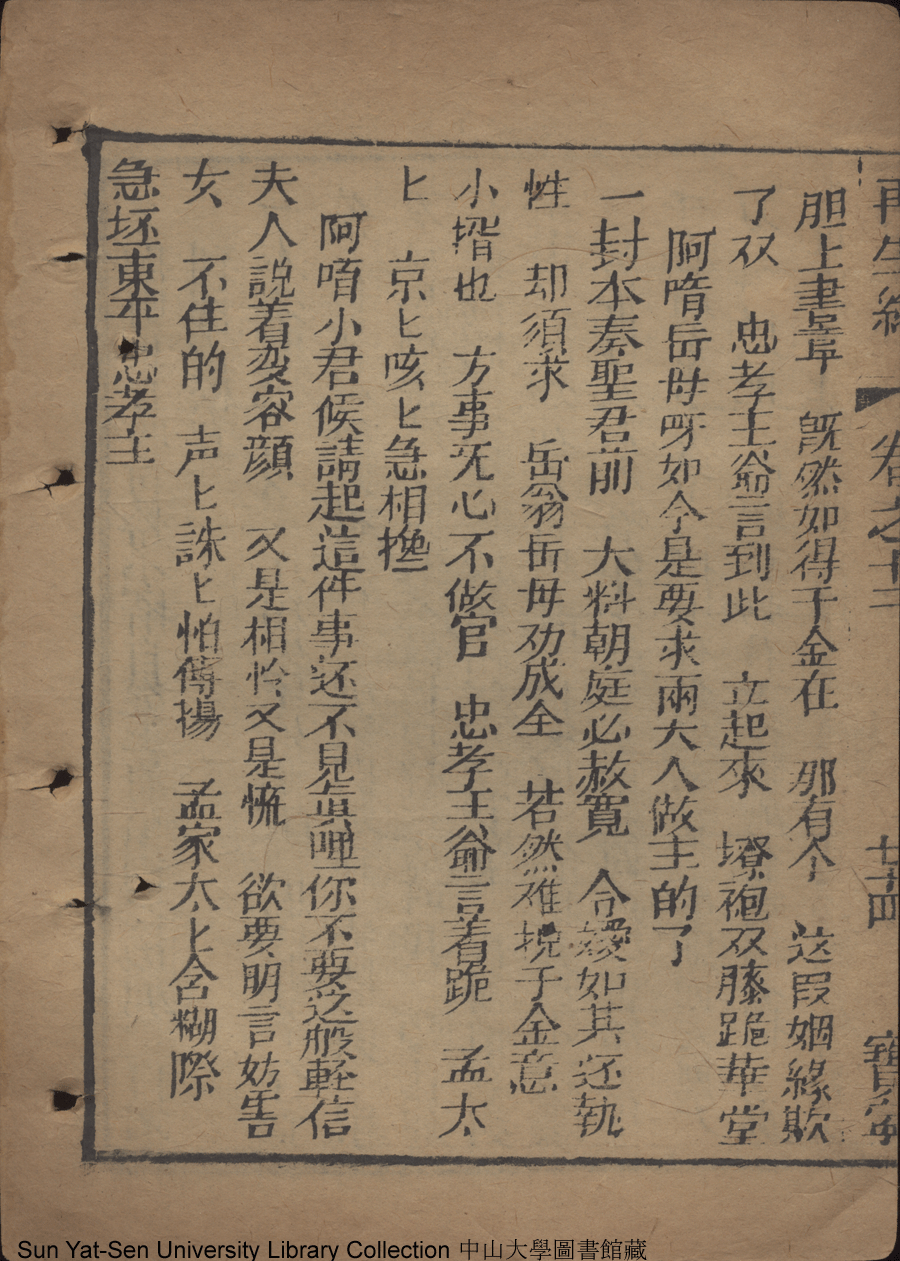 再生緣 卷之十二 廿四 寶寧
胆上書章 旣然如得千金在 那有个 这叚姻緣欺
了双 忠孝王爺言到此 立起來 撩袍双膝跪華堂
阿唷岳母呀如今是要求兩大人做主的了
一封本奏聖君前 大料朝庭必赦寬 令嬡如其还執
性 却須求 岳翁岳母劝成全 若然难挽千金意
小壻也 方事旡心不做官 忠孝王爺言着跪 孟太
匕 京匕咳匕急相攙
阿唷小君候請起這件事还不見真哩你不要这般軽信
夫人説着変容顔 又是相怜又是慌 欲要明言妨害
女 不住的 声匕誅匕怕傳揚 孟家太匕含糊際
急坯東平忠孝王
Sun Yat-Sen University Library Collection 中山大學圖書館藏